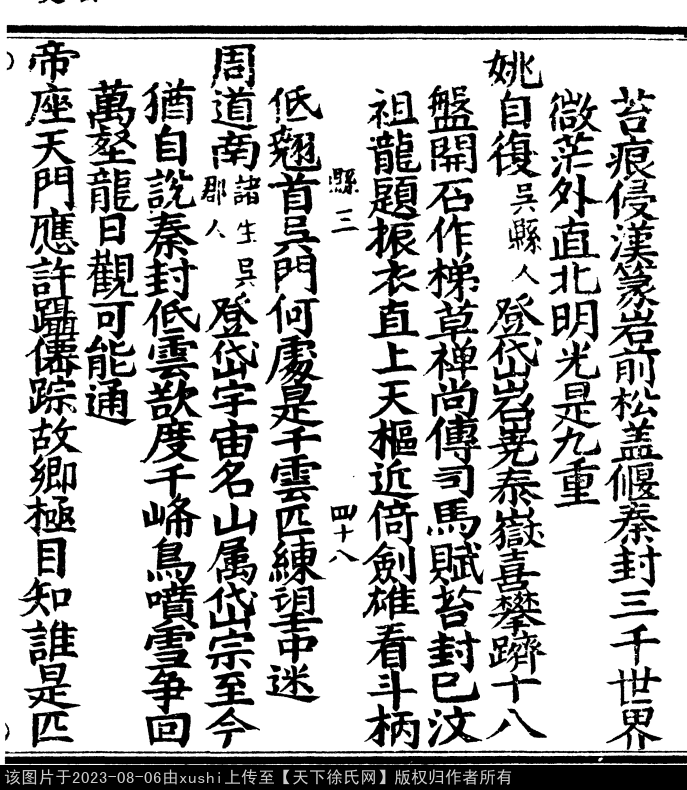 苔痕侵漢篆岩前松盖偃秦封三千世界
微茫外直北明光是九重
姚自復吳縣人登岱岧尭泰嶽喜攀躋十八
盤開石作梯草禅尚傳司馬賦苔封已汶
祖龍題振衣直上天樞近倚劍雄看斗柄
縣三 四十八
低翹首吳門何處是千雲匹練望中迷
周道南諸生吳郡人登岱宇宙名山属岱宗至今
猶自説秦封低雲欲度千峰鳥噴雪争回
萬壑龍日觀可能通
帝座天門應許躡僊踪故鄉極目知誰是匹
该图片于2023-08-06由xushi上传至【天下徐氏网】版权归作者所有